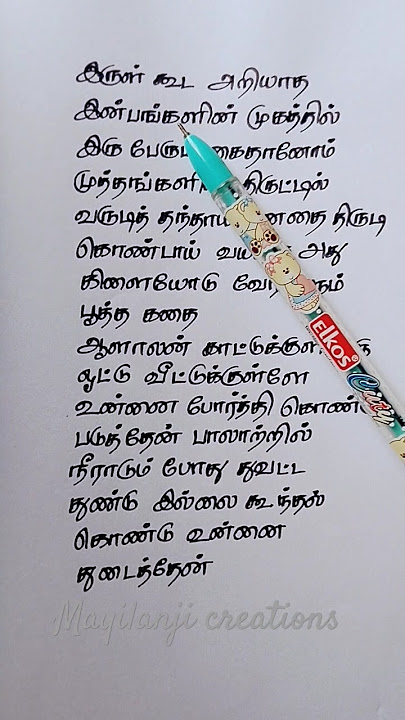 இருள் கூட அறியாத
இன்பங்களின் முகத்தில்
இரு கைதானோம்
முத்தங்களின் திருட்டில்
வருடித் தந்தாய் திருடி
கொண்டாய் அது
கிளையோடு
பூத்த கதை
ஆளாலன்
ஓட்டு வீட்டுக்குள்ளே
உன்னை போர்த்தி
படுத்தேன் பாலாற்றில்
நீராடும் போது துவட்ட
துண்டு இல்லை கூந்தல்
கொண்டு உன்னை
துடைத்தேன்
Elkos
Cutiy
Mayilanji creations